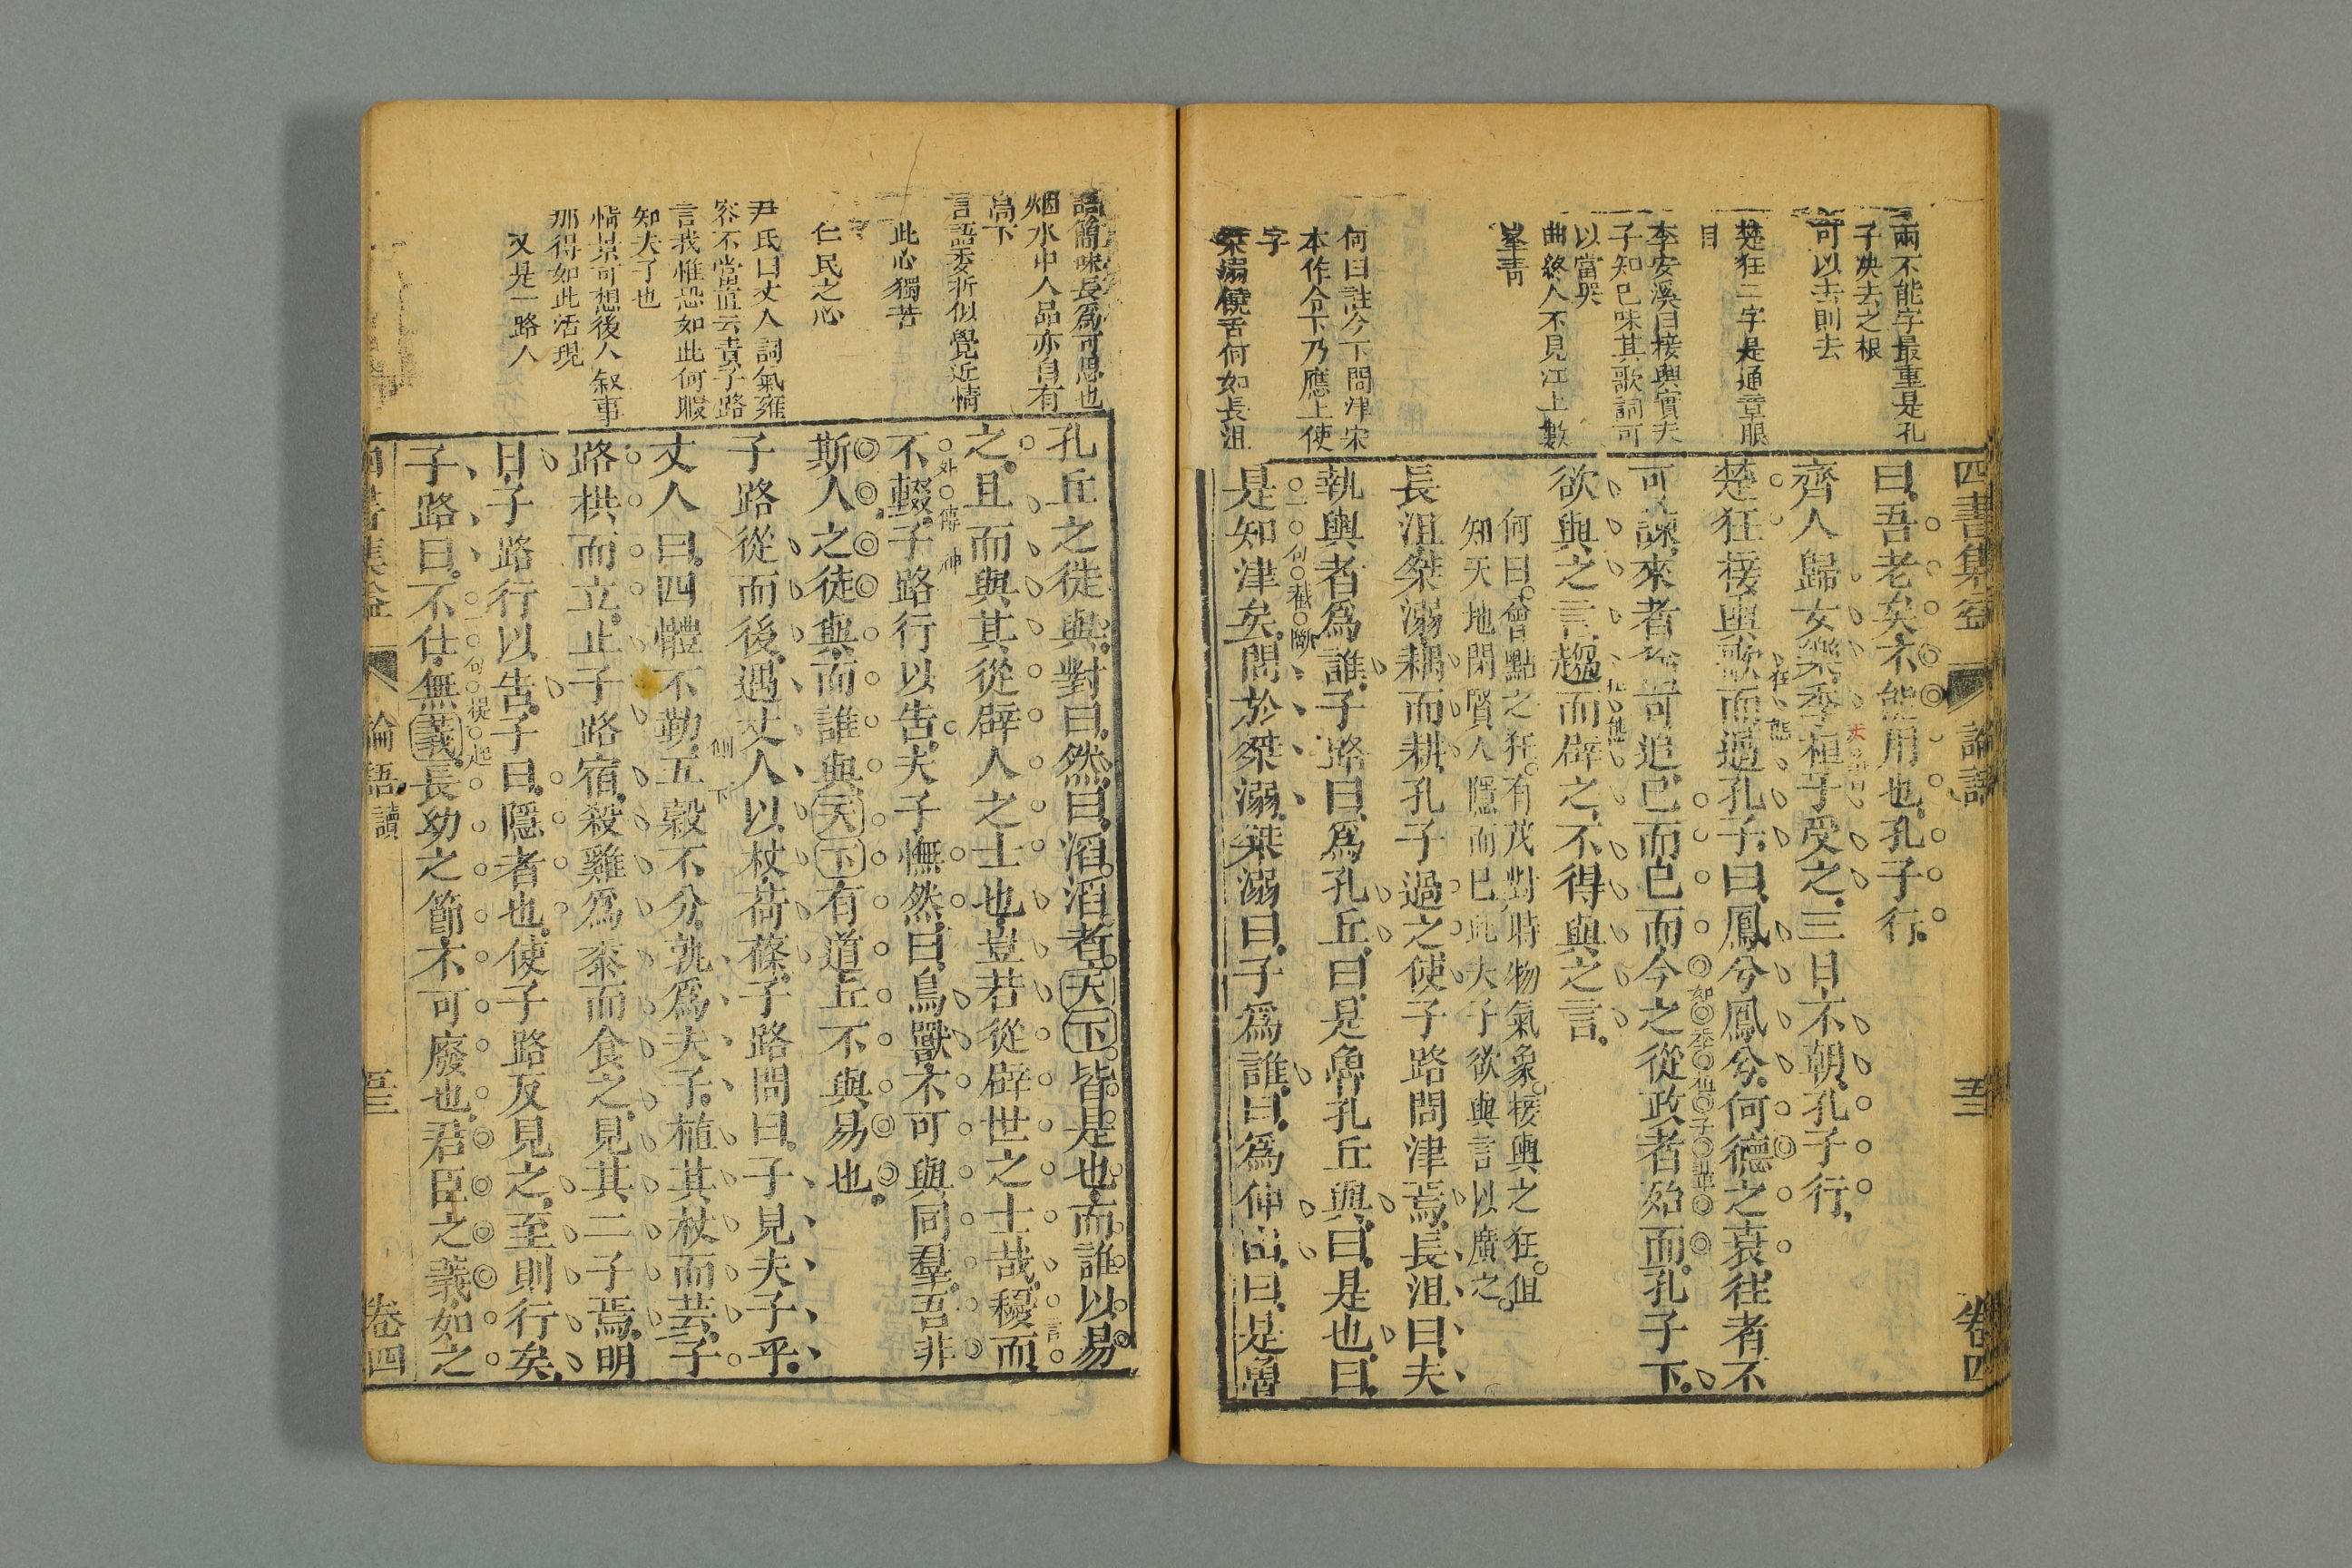 四書集益
論語
五三
卷四
兩不能字最重是孔
子决去之根
可以去則去
楚狂二字是通章眼
目
李安溪曰接輿實夫
子知己味其歌詞可
以當哭
曲終人不見江上數
峯青
何曰註今下問津宋
本作令下乃應上使
字
桀溺饒舌何如長沮
曰吾老矣不能用也孔子行
齊人歸女樂季桓子受之三日不朝孔子行
楚狂接輿歌而過孔子曰鳳兮鳳兮何德之衰往者不
狂態
可諫來者猶可追已而已而今之從政者殆而孔子下
欲與之言趨而辟之不得與之言
何曰曾點之狂有茂對時物氣象接輿之狂但
知天地閉賢人隱而已此夫子欲與言以廣之
長沮桀溺耦而耕孔子過之使子路問津焉長沮曰夫
執輿者爲誰子路曰爲孔丘曰是魯孔丘與曰是也曰
一句截斷
是知津矣問於桀溺桀溺曰子爲誰曰爲仲由曰是魯
語簡味長爲可思也
烟水中人品亦自有
高下
言語委折似覺近情
此心獨苦
仁民之心
尹氏曰丈人詞氣雍
容不當值云責子路
言我惟恐如此何暇
知夫子也
情景可想後人叙事
那得如此活現
又是一路人
孔丘之徒與對曰然曰滔滔者天下皆是也而誰以易
之且而與其從辟人之士也豈若從辟世之士哉耰而
言外傳神
不輟子路行以告夫子憮然曰鳥獸不可與同羣吾非
斯人之徒與而誰與天下有道丘不與易也
子路從而後遇丈人以杖荷蓧子路問曰子見夫子乎
丈人曰四體不勤五穀不分孰爲夫子植其杖而芸子
路拱而立止子路宿殺雞爲黍而食之見其二子焉明
日子路行以告子曰隱者也使子路反見之至則行矣
一句提起
子路曰不仕無義長幼之節不可廢也君臣之義如之
四書集益
論語讀
五三
卷四